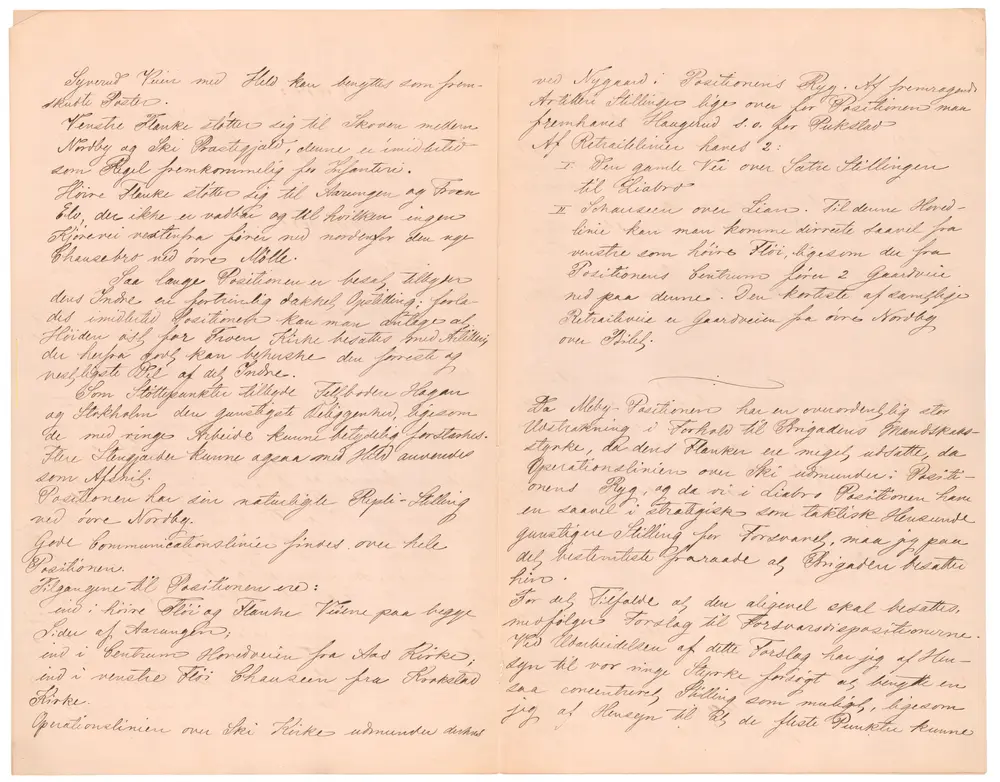 Syverud Veien med Held kan benyttes som frem-
skudte Poster.
Venstre Flanke støtter sig til Skoven mellem
Nordby og Ski Præstegjæld, denne er imidlertid
som Regel fremkommelig for Infanteri.
Høire Flanke støtter sig til Aarungen og Froen
Elv, der ikke er vadbar og til hvilken ingen
Kjørevei vestenfra fører ned nordenfor den nye
Chausebro ved övre Mölle.
Saa længe Positionen er besat, tilbyder
dens Indre en fortrinlig dækket Opstilling; forla-
des imidlertid Positionen kan man antage at
Høiden öst for Froen Kirke besættes med Artilleri,
der herfra godt kan beherske den forreste og
vestligste Del af det Indre.
Som Støttepunkter tilbyde Teltboden Hagan
og Stokholm den gunstigste Beliggenhed, ligesom
de med ringe Arbeide kunne betydelig forstærkes.
Flere Stengjærder kunne ogsaa med Held anvendes
som Afsnit.
Positionen har sin naturligste Repli-Stilling
ved övre Nordby.
Gode Communicationslinier findes over hele
Positionen.
Tilgangene til Positionen ere:
ind i höire Flöi og Flanke Veiene paa begge
Sider af Aarungen;
ind i Centrum Hovedveien fra Aas Kirke;
ind i venstre Flöi Chauseen fra Kroksstad
Kirke.
Operationslinien over Ski Kirke udmunder direkte
ved Nygaard i Positionens Ryg. Af fremragende
Artilleri Stillinger lige over for Positionen maa
fremhæves Haugerud s.o. for Pukstad
Af Retraitelinier haves 2:
I Den gamle Vei over Sætre Stillingen
til Liabro
II Schauseen over Lian. Til denne Hoved-
linie kan man komme dirrecte saavel fra
venstre som höire Flöi, ligesom der fra
Positionens Centrum fører 2 Gaardveie
ned paa denne. Den korteste af samtlige
Retraiteveie er Gaardveien fra övre Nordby
over Bölet.
Da Meby-Positionen har en overordentlig stor
Udstrækning i Forhold til Brigadens Mandskabs-
styrke, da dens Flanker ere meget udsatte, da
Operationslinien over Ski udmunder i Positi-
onens Ryg, og da vi i Liabro Positionen have
en saavel i strategisk som taktisk Henseende
gunstigere Stilling for Forsvaret, maa jeg paa
det bestemteste fraraade at Brigaden besætter
hin.
For det Tilfælde at den aligevel skal besættes,
medfølger Forslag til Forsvarsdispositionerne.
Ved Udarbeidelsen af dette Forslag har jeg af Hen-
syn til vor ringe Styrke forsøgt at benytte en
saa concentreret Stilling som muligt, ligesom
jeg af Hensyn til at de fleste Punkter kunne